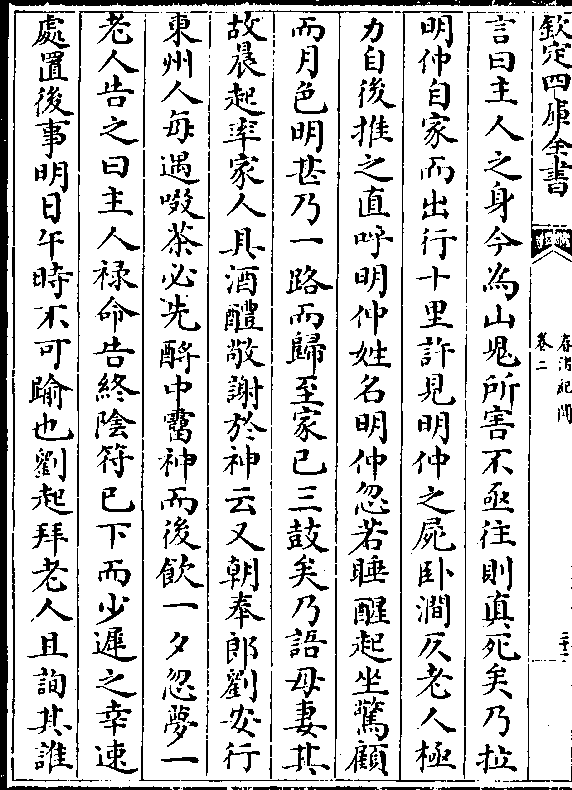 欽定四庫全書
春渚紀聞
卷二
言曰主人之身今為山鬼所害不亟往則真死矣乃拉
明仲自家而出行十里許見明仲之屍臥澗仄老人極
力自後推之直呼明仲姓名明仲忽若睡醒起坐驚顧
而月色明甚乃一路而歸至家已三鼓矣乃語母妻其
故晨起率家人具酒醴敬謝於神云又朝奉郎劉安行
東州人每遇啜茶必先酹中霤神而後飲一夕忽夢一
老人告之曰主人禄命告終陰符已下而少遲之幸速
處置後事明日午時不可踰也劉起拜老人且詢其誰